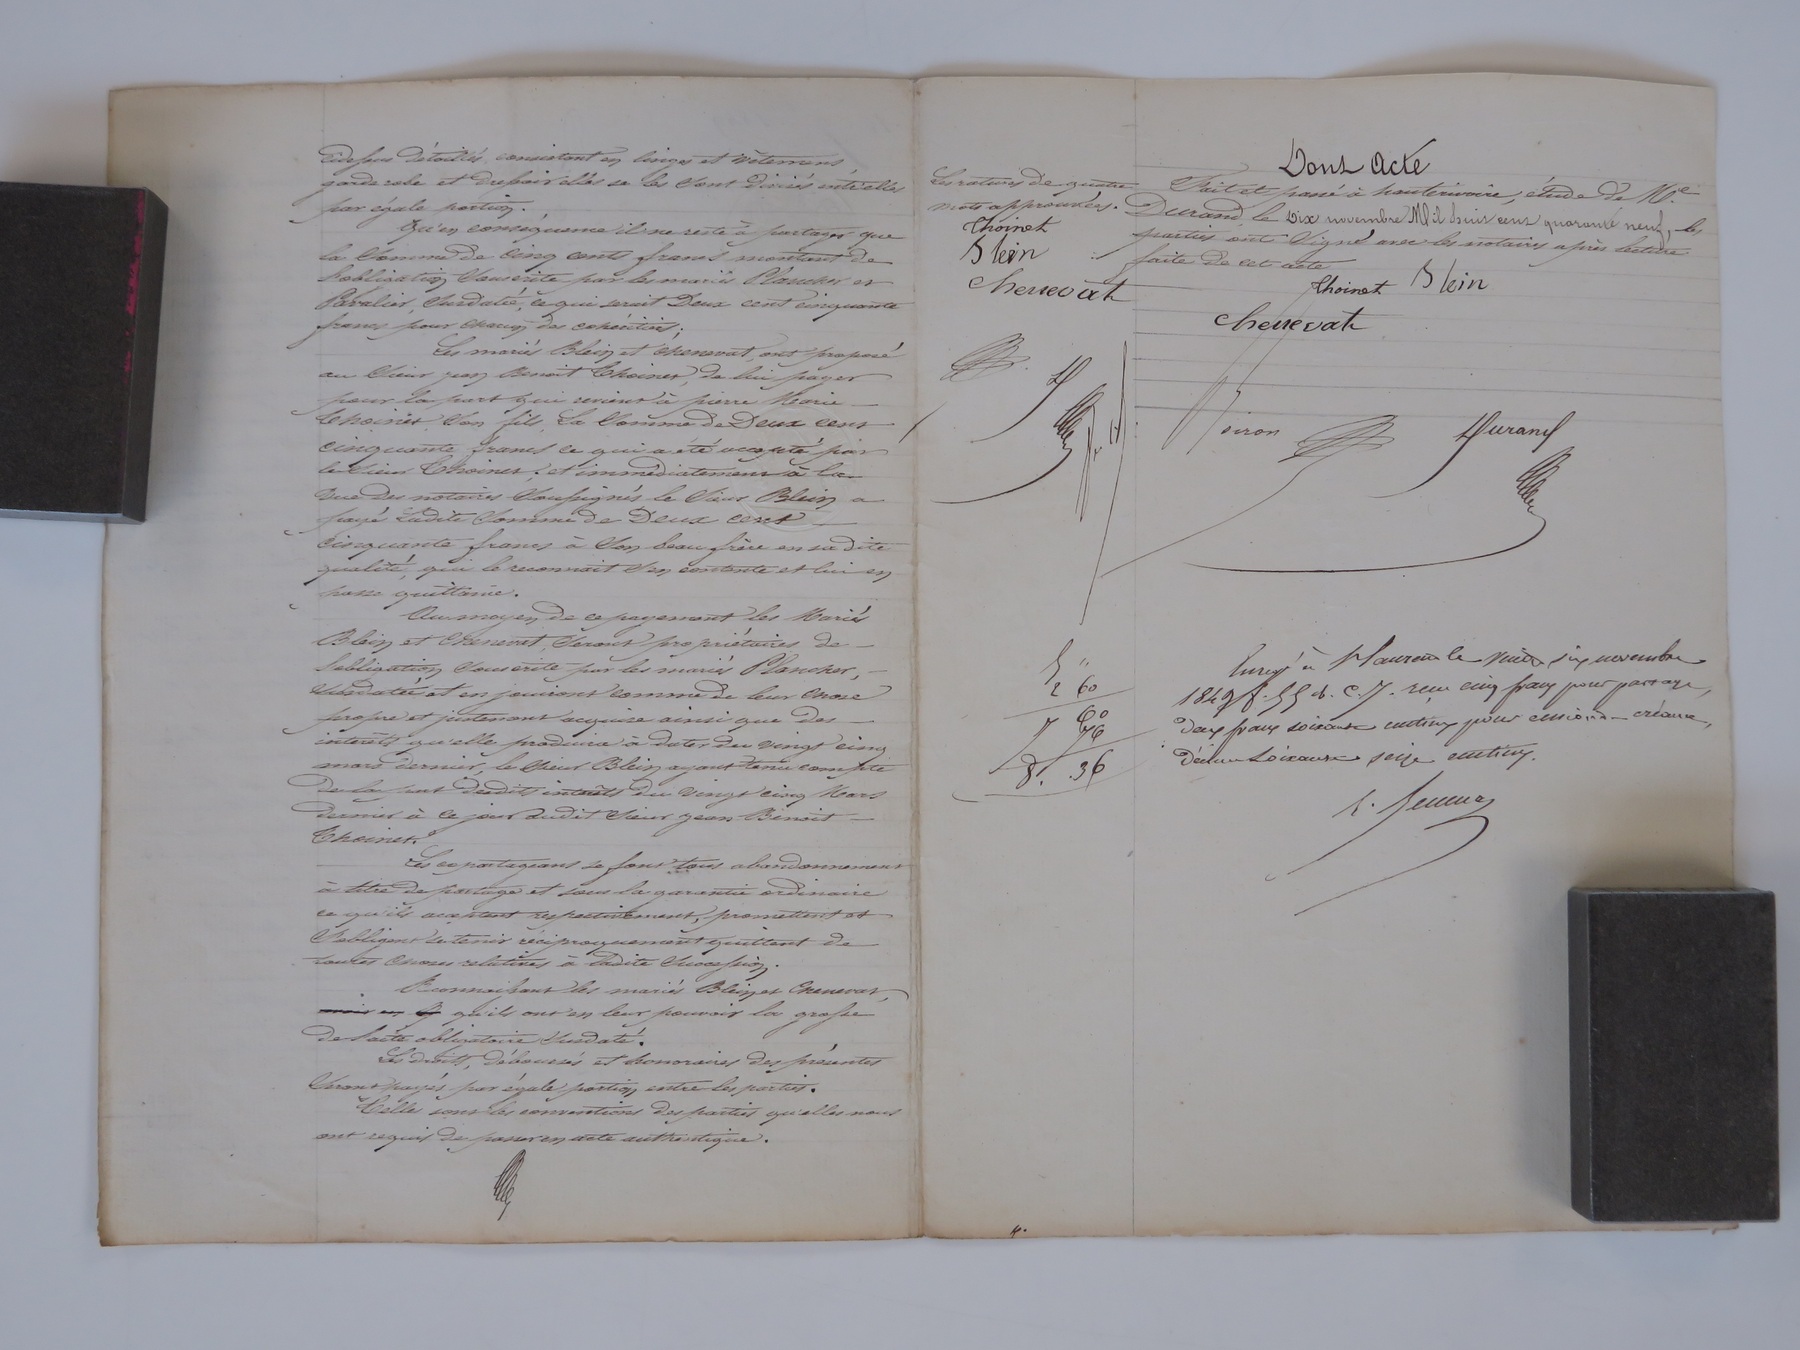 détaillés, consistant en linges et vêtemens,
garderobe et elles se les sont divisés entr'elles
par égale portion.
Qu'en conséquence il ne reste à partager que
la Somme de Cinq cents francs montant de
l'obligation Souscrite par les mariés Plancher et
Susdatée, ce qui serait Deux cent cinquante
francs pour chacun des cohéritiers;
Les mariés Blein et Chenevat, ont proposé
au Sieur jean Benoit Thoinet, de lui payer
pour la part qui revient à pierre Marie
thoinet Son fils, La Somme de Deux cent
cinquante francs ce qui a été accepté par
le Sieur Thoinet; et immédiatement à la
vue des notaires Soussignés le Sieur Blein a
payé Ladite Somme de Deux cent
cinquante francs à Son beau frère en sa dite
qualité, qui le reconnait S'en contente et lui en
passe quittance.
Au moyen de ce payement les Mariés
Blein et Chenevat, Seront propriétaires de
l'obligation Souscrite par les mariés Plancher,
Susdatée et en jouiront comme de leur chose
propre et justement acquise ainsi que des
interêts qu'elle produira à dater du vingt cinq
mars dernier, le Sieur Blein ayant tenu compte
De la part desdits interêts du vingt cinq Mars
dernier à ce jour audit Sieur jean Benoit
Thoinet.
Les copartageans se font tous abandonnement
à titre de partage et sous la garantie ordinaire
ce qu'ils acceptent respectivement, promettent et
S'obligent se tenir réciproquement quittent de
toutes choses relatives à ladite Succession.
Reconnaissant les mariés Blein et Chenevat,
qu'ils ont en leur pouvoir la grosse
de l'acte obligatoire Susdaté.
Les droits, déboursés et honoraires des présentes
Seront payés par égale portion entre les parties.
Telles sont les conventions des parties qu'elles nous
ont requis de passer en acte authentique.
Les ratures de quatre
mots approuvées.
thoinet
Blein
chenevat
Dont Acte
Fait et passé à hauterivoire, étude de Me
Durand le Dix novembre Mil huit cent quarante neuf, les
parties ont Signé avec les notaires après lecture
faite de cet acte
thoinet Blein
chenevat
Durand
5 "
2 60
7 60
76
8. 36
Enregé à St laurent le vingt six novembre
1849 f. 55 r. C. 7. reçu cinq francs pour partage,
deux francs soixante centimes pour cession de créance,
décime soixante seize centimes.